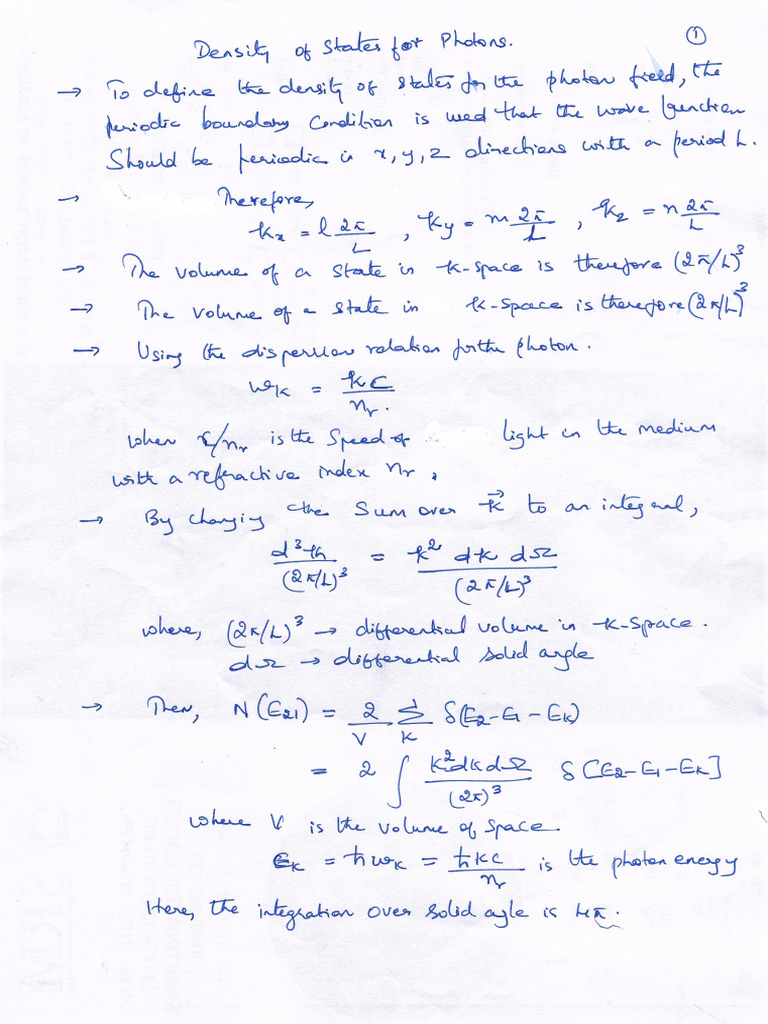 Density of States for Photons. ①
→ To define the density of states for the photon field, the
periodic boundary condition is used that the wave function
Should be periodic in x, y, z directions with a period L.
→ Therefore,
kx = l 2π/L , ky = m 2π/L , kz = n 2π/L
→ The volume of a state in k-space is therefore (2π/L)³
→ The volume of a state in k-space is therefore (2π/L)³
→ Using the dispersion relation for the photon.
ωk = kc/nr.
when c/nr is the Speed of light in the medium
with a refractive index nr,
→ By changing the sum over k⃗ to an integral,
d³k/(2π/L)³ = k² dk dΩ/(2π/L)³
where, (2π/L)³ → differential volume in k-space.
dΩ → differential solid angle
→ Then, N(E21) = 2/V Σk δ(E2-E1-Ek)
= 2 ∫ k²dkdΩ/(2π)³ δ[E2-E1-Ek]
where V is the volume of space.
Ek = ħωk = ħkc/nr is the photon energy
Here, the integration over solid agle is 4π.